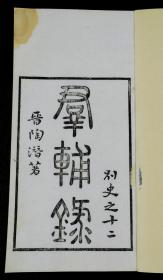 別史之十二
羣輔錄
晉陶潛著